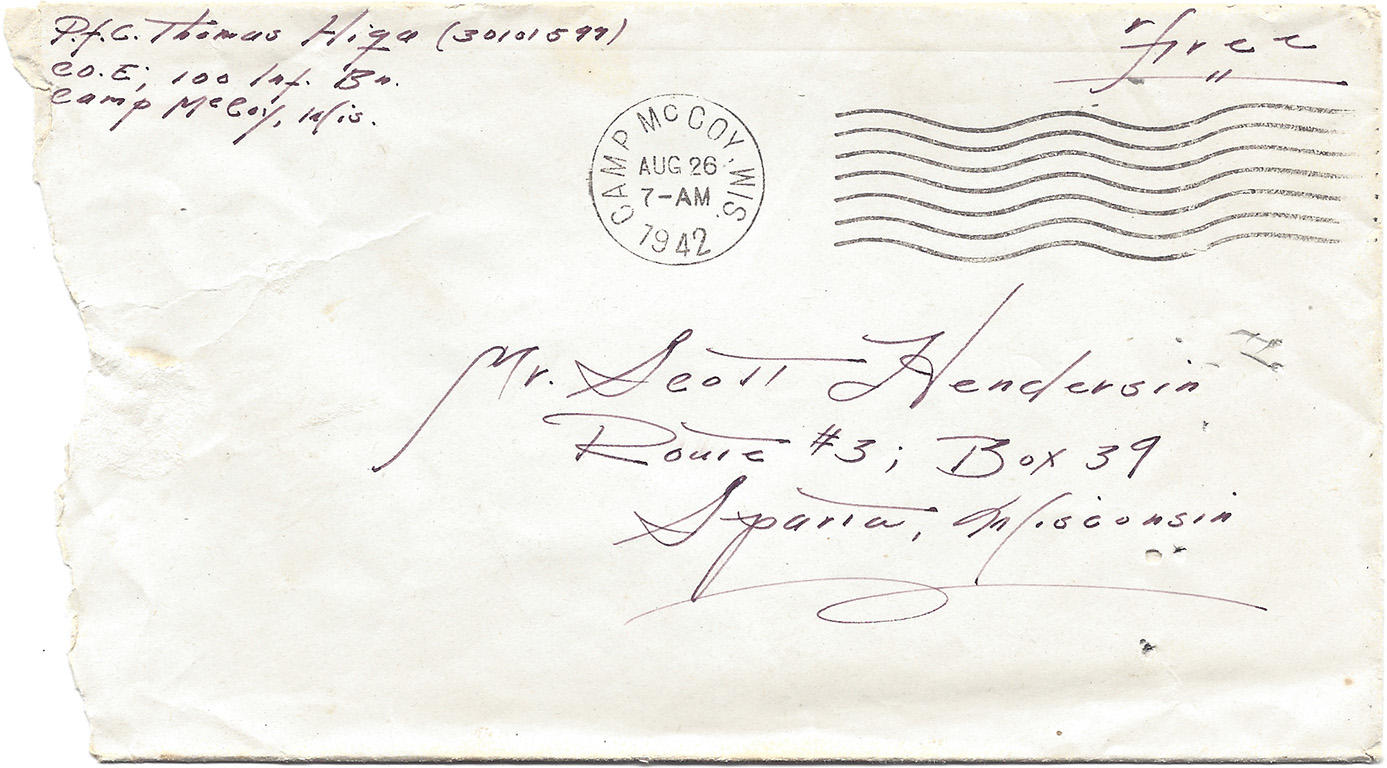 P.f.C. Thomas Higa (30101599)
CO. E; 100 Inf. Bn.
Camp McCoy, Wis.
"free"
CAMP McCOY WIS.
AUG 26
7-AM
1942
Mr. Scott Hendersin
Route #3; Box 39
Sparta, Wisconsin